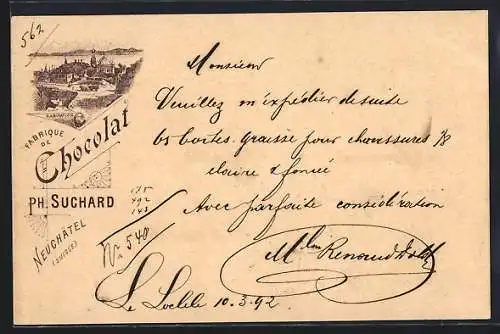 562
FABRIQUE
DE
Chocolat
PH. SUCHARD
NEUCHÂTEL
(SUISSE)
No 540
Monsieur
Veuillez m'expédier de suite
65 boites graisse pour chaussures
claire & foncée
Avec parfaite considération
Renaud
Le Locle 10.3.92